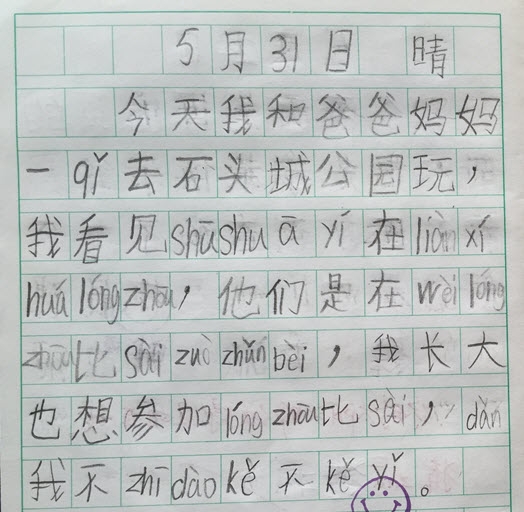 5月31日 晴
今天我和爸爸妈妈
一qǐ去石头城公园玩，
我看见shūshu ā yí在liàn xí
huá lóng zhōu，他们是在wèi lóng
zhōu比sài zuò zhǔn bèi，我长大
也想参加lóng zhōu比sài，dǎn
我不zhī dào kě不kě yǐ。